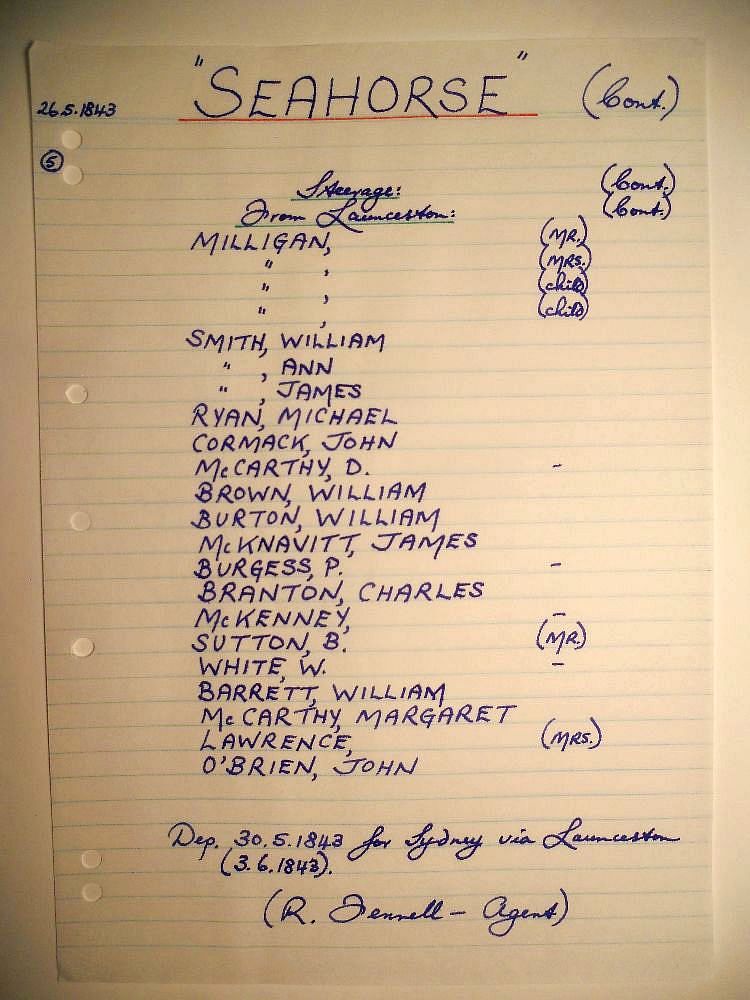 "SEAHORSE" (Cont.)
26.5.1843
5
Steerage: (Cont.)
From Launceston: (Cont.)
MILLIGAN, (MR.)
" , (MRS.)
" , (child)
" , (child)
SMITH, WILLIAM
" , ANN
" , JAMES
RYAN, MICHAEL
CORMACK, JOHN
McCARTHY, D. -
BROWN, WILLIAM
BURTON, WILLIAM
McKNAVITT, JAMES
BURGESS, P. -
BRANTON, CHARLES
McKENNEY, -
SUTTON, B. (MR.)
WHITE, W. -
BARRETT, WILLIAM
McCARTHY, MARGARET
LAWRENCE, (MRS.)
O'BRIEN, JOHN
Dep. 30.5.1843 for Sydney via Launceston
(3.6.1843).
(R. Fennell - Agent)